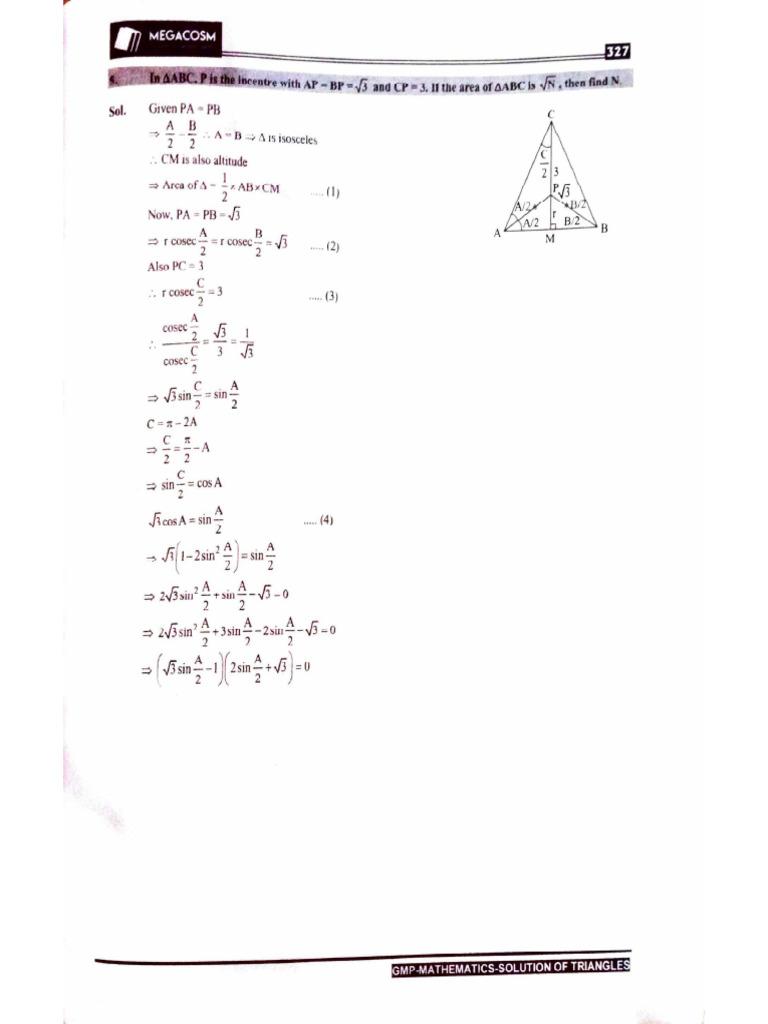 MEGACOSM
327
In ΔABC, P is the incentre with AP = BP = √3 and CP = 3. If the area of ΔABC is √N , then find N.
Sol. Given PA = PB
⇒ A/2 = B/2 ∴ A = B ⇒ Δ is isosceles
∴ CM is also altitude
⇒ Area of Δ = 1/2 × AB × CM ..... (1)
Now, PA = PB = √3
⇒ r cosec A/2 = r cosec B/2 = √3 ..... (2)
Also PC = 3
∴ r cosec C/2 = 3 ..... (3)
∴ (cosec A/2)/(cosec C/2) = √3/3 = 1/√3
⇒ √3 sin C/2 = sin A/2
C = π – 2A
⇒ C/2 = π/2 – A
⇒ sin C/2 = cos A
√3 cos A = sin A/2 ..... (4)
⇒ √3(1 – 2sin² A/2) = sin A/2
⇒ 2√3 sin² A/2 + sin A/2 – √3 = 0
⇒ 2√3 sin² A/2 + 3sin A/2 – 2sin A/2 – √3 = 0
⇒ (√3 sin A/2 – 1)(2sin A/2 + √3) = 0
C
C/2 3
P √3
A/2 B/2
A/2 r B/2
A M B
GMP-MATHEMATICS-SOLUTION OF TRIANGLES